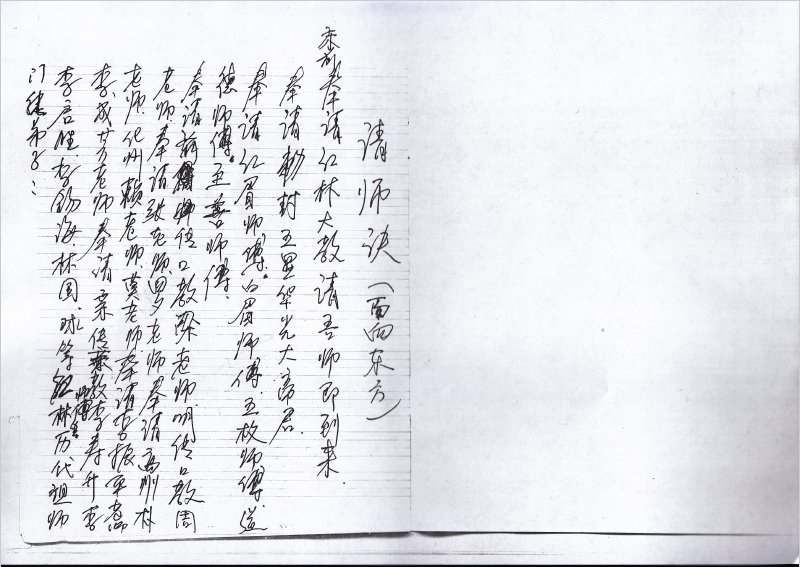 请师诀（面向东方）
奉请红林大教请吾师即到来
奉请勅封五显华光大帝君
奉请红眉师傅。白眉师傅。五枚师傅。道
德师傅。至善师傅、
奉请前传口教梁老师明传口教周
老师。奉请张老师罗老师奉请高州林
老师。化州赖老师。莫老师奉请李振
李成芳老师奉请亲传教李寿升李
李言胜李锡海林国球等红林历代祖师
门徒弟子：